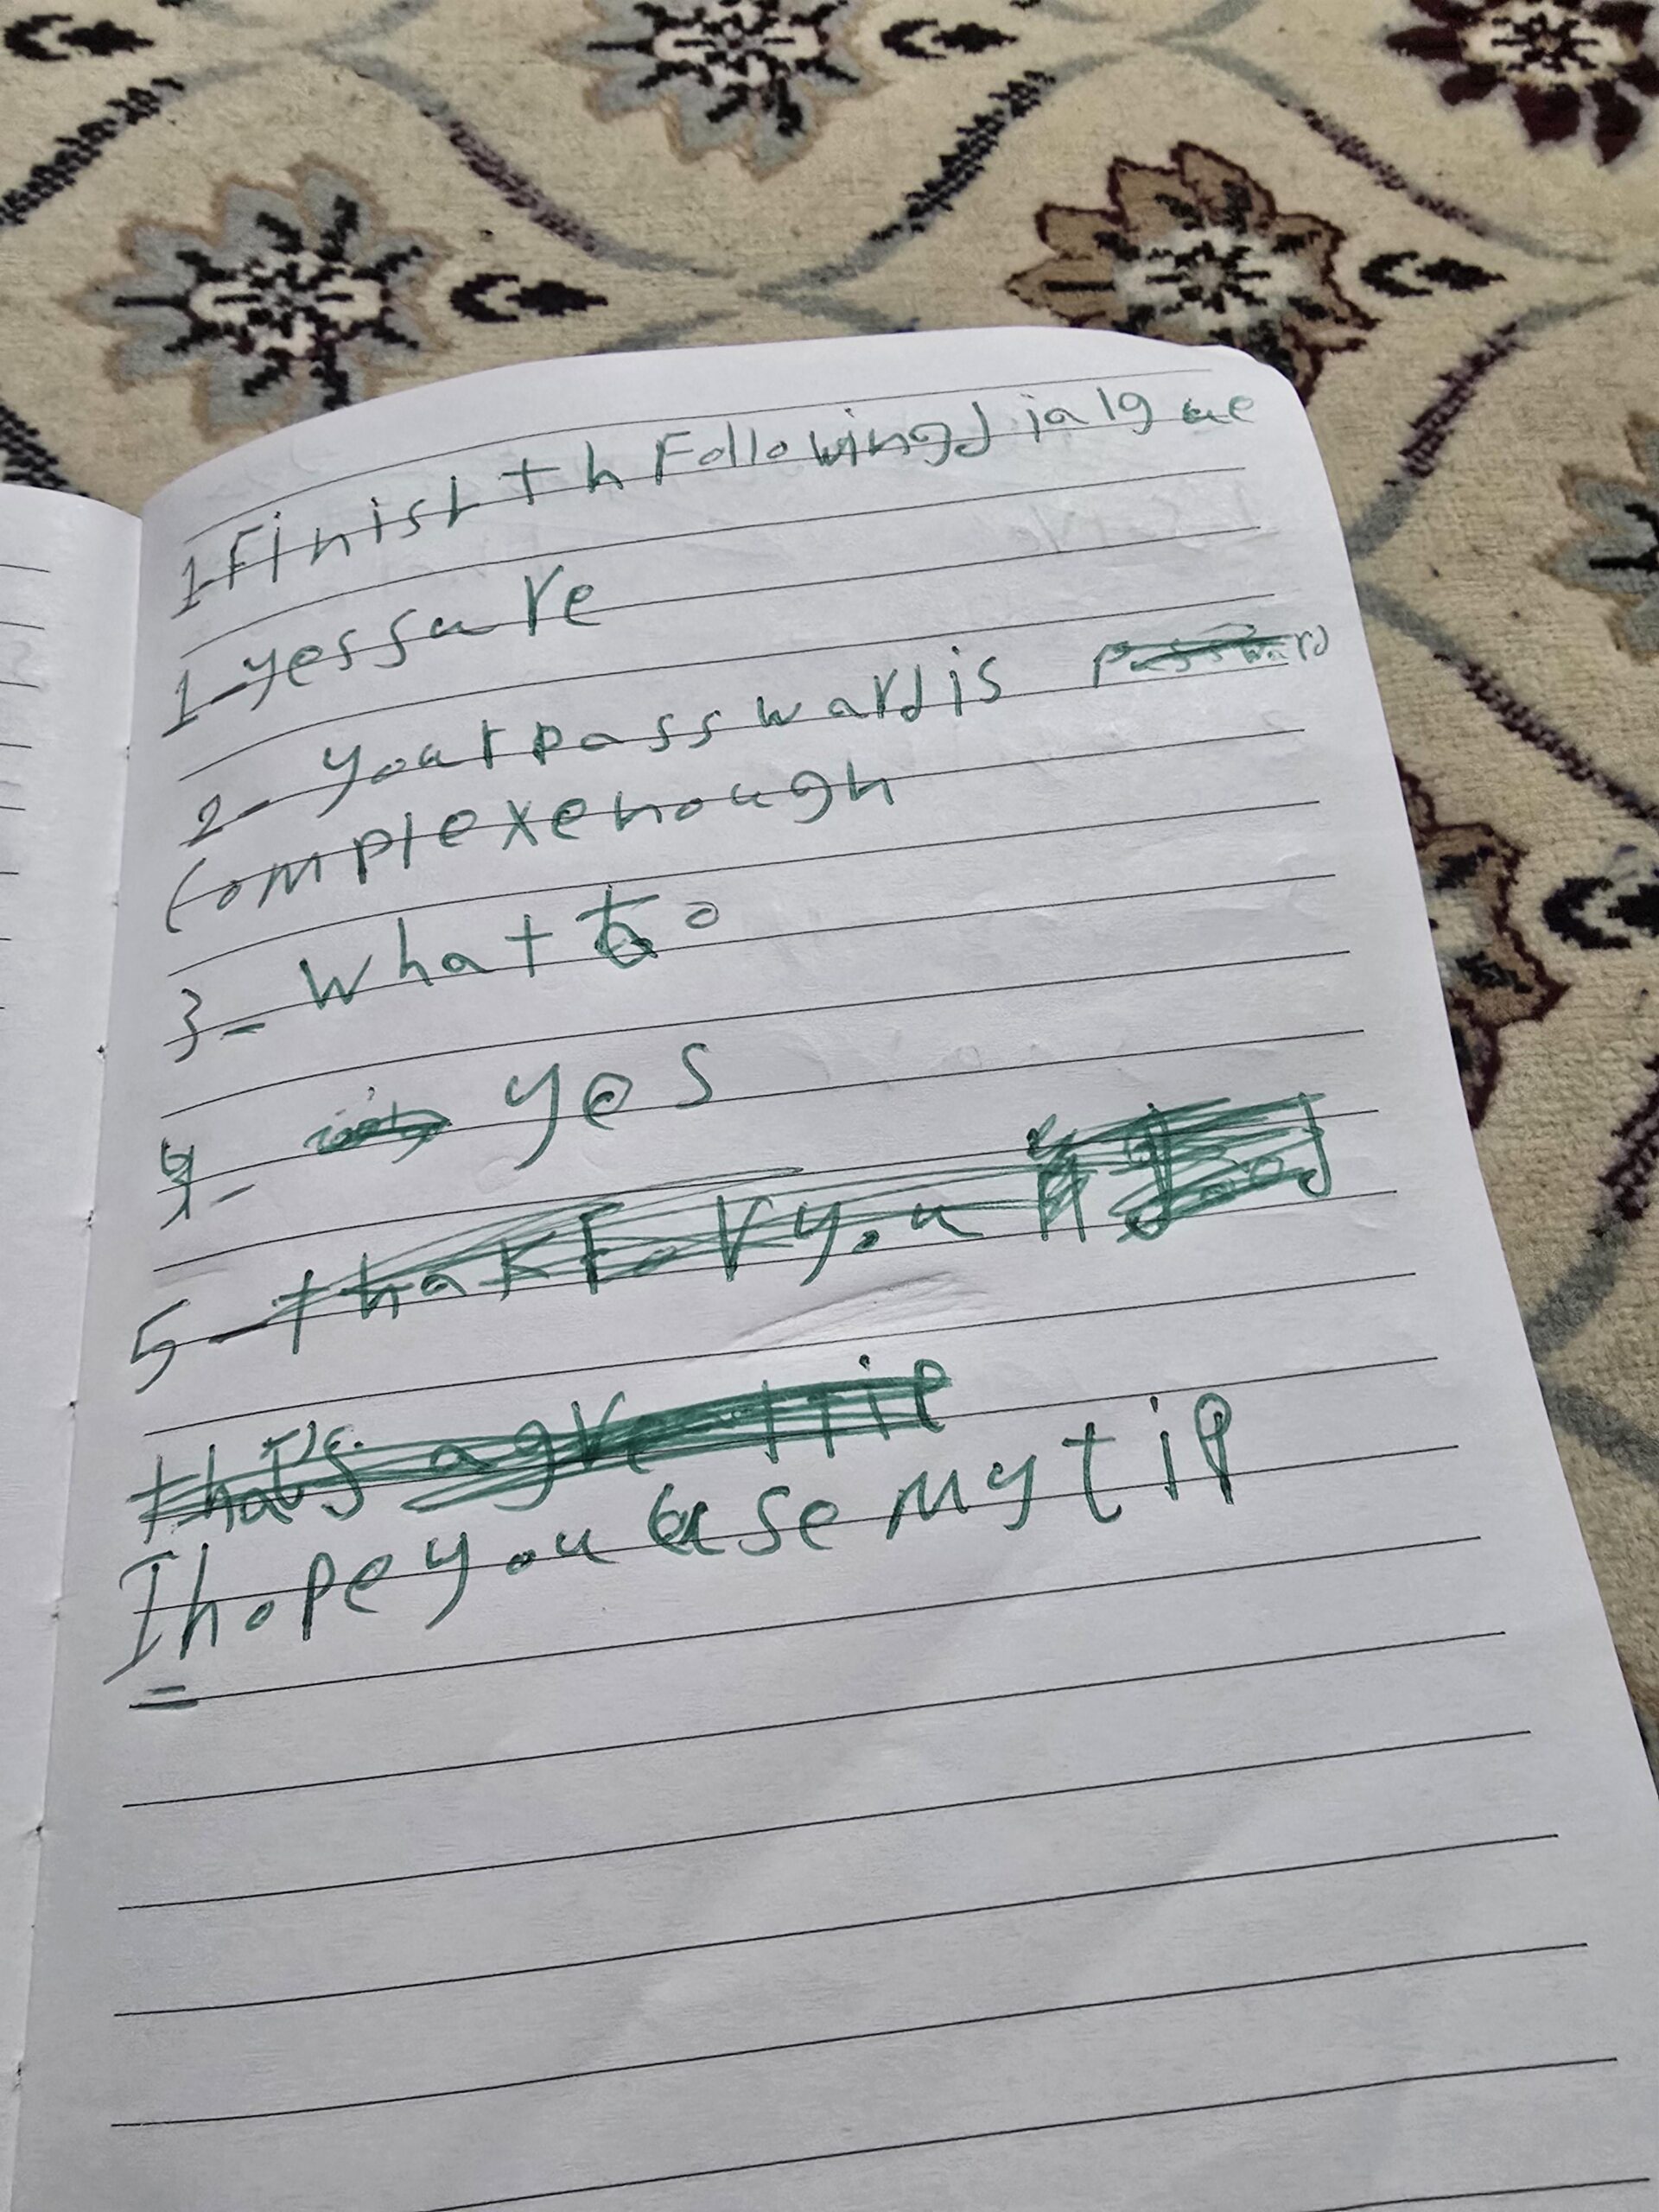 1-Finish th Following dialgue
1-yes sure
2- your password is password
Complex enough
3- what to
4- yes
5- thak For you
that's a great tip
I hope you use my tip